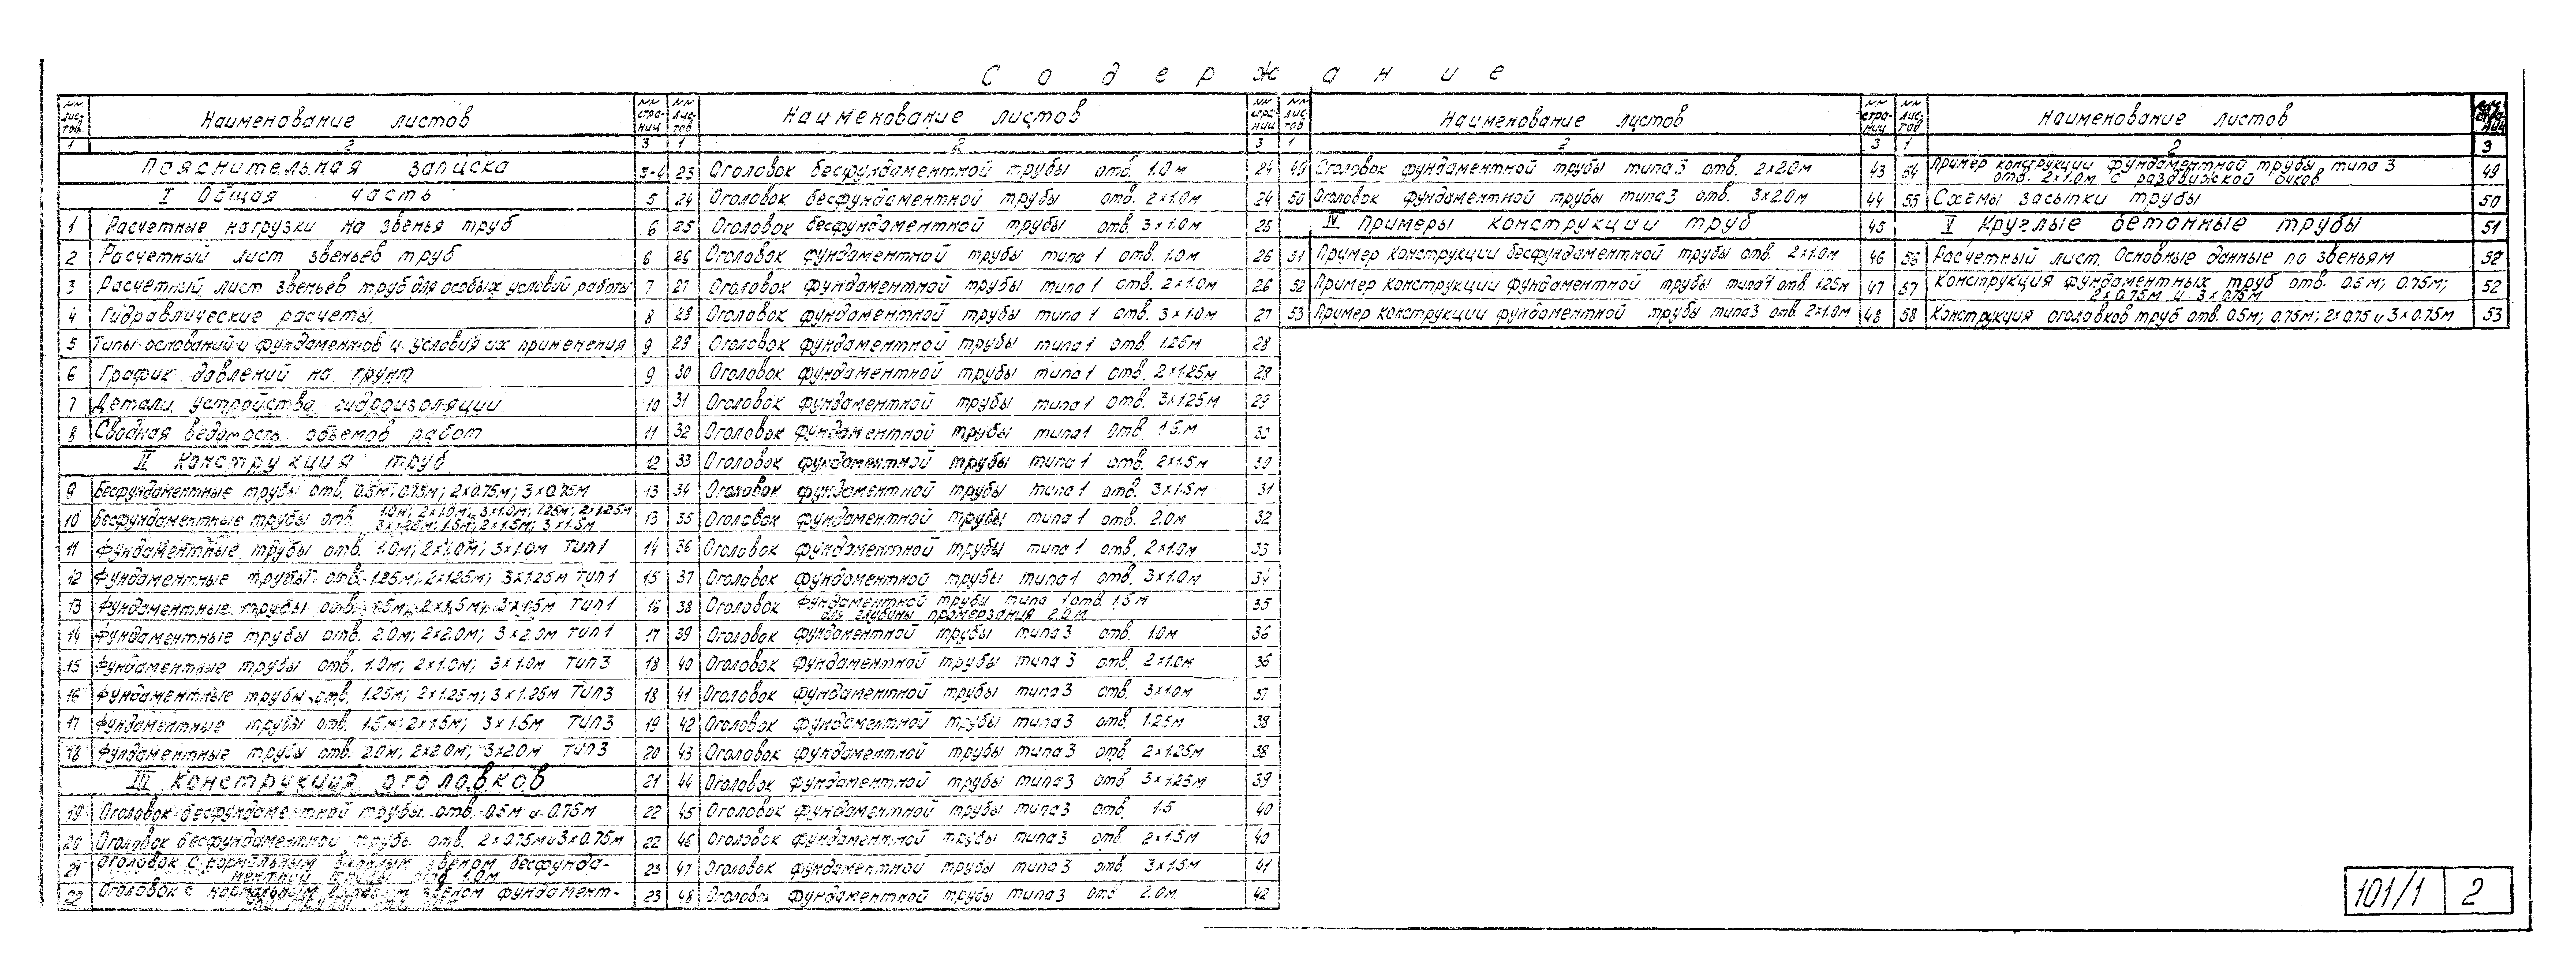 Содержание
NN листов | Наименование листов | NN страниц
1 | 2 | 3
Пояснительная записка | 3-4
I Общая часть | 5
1 | Расчетные нагрузки на звенья труб | 6
2 | Расчетный лист звеньев труб | 6
3 | Расчетный лист звеньев труб для особых условий работы | 7
4 | Гидравлические расчеты. | 8
5 | Типы оснований и фундаментов и условия их применения | 9
6 | График давлений на грунт | 9
7 | Детали устройства гидроизоляции | 10
8 | Сводная ведомость объемов работ | 11
II Конструкция труб | 12
9 | Бесфундаментные трубы отв. 0.5м; 0.75м; 2×0.75м; 3×0.75м | 13
10 | Бесфундаментные трубы отв. 1.0м; 2×1.0м; 3×1.0м; 1.25м; 2×1.25м
3×1.25м; 1.5м; 2×1.5м; 3×1.5м | 13
11 | Фундаментные трубы отв. 1.0м; 2×1.0м; 3×1.0м Тип 1 | 14
12 | Фундаментные трубы отв. 1.25м; 2×1.25м; 3×1.25м Тип 1 | 15
13 | Фундаментные трубы отв. 1.5м; 2×1.5м; 3×1.5м Тип 1 | 16
14 | Фундаментные трубы отв. 2.0м; 2×2.0м; 3×2.0м Тип 1 | 17
15 | Фундаментные трубы отв. 1.0м; 2×1.0м; 3×1.0м Тип 3 | 18
16 | Фундаментные трубы отв. 1.25м; 2×1.25м; 3×1.25м Тип 3 | 18
17 | Фундаментные трубы отв. 1.5м; 2×1.5м; 3×1.5м Тип 3 | 19
18 | Фундаментные трубы отв. 2.0м; 2×2.0м; 3×2.0м Тип 3 | 20
III Конструкция оголовков | 21
19 | Оголовок бесфундаментной трубы отв. 0.5м и 0.75м | 22
20 | Оголовок бесфундаментной трубы отв. 2×0.75м и 3×0.75м | 22
21 | Оголовок с нормальным входным звеном бесфунда-
ментной трубы отв. 1.0м | 23
22 | Оголовок с нормальным входным звеном фундамент- | 23
NN листов | Наименование листов | NN страниц
1 | 2 | 3
23 | Оголовок бесфундаментной трубы отв. 1.0м | 24
24 | Оголовок бесфундаментной трубы отв. 2×1.0м | 24
25 | Оголовок бесфундаментной трубы отв. 3×1.0м | 25
26 | Оголовок фундаментной трубы типа 1 отв. 1.0м | 26
27 | Оголовок фундаментной трубы типа 1 отв. 2×1.0м | 26
28 | Оголовок фундаментной трубы типа 1 отв. 3×1.0м | 27
29 | Оголовок фундаментной трубы типа 1 отв. 1.25м | 28
30 | Оголовок фундаментной трубы типа 1 отв. 2×1.25м | 28
31 | Оголовок фундаментной трубы типа 1 отв. 3×1.25м | 29
32 | Оголовок фундаментной трубы типа 1 отв. 1.5м | 30
33 | Оголовок фундаментной трубы типа 1 отв. 2×1.5м | 30
34 | Оголовок фундаментной трубы типа 1 отв. 3×1.5м | 31
35 | Оголовок фундаментной трубы типа 1 отв. 2.0м | 32
36 | Оголовок фундаментной трубы типа 1 отв. 2×1.0м | 33
37 | Оголовок фундаментной трубы типа 1 отв. 3×1.0м | 34
38 | Оголовок фундаментной трубы типа 1 отв. 1.5м
для глубины промерзания 2.0м | 35
39 | Оголовок фундаментной трубы типа 3 отв. 1.0м | 36
40 | Оголовок фундаментной трубы типа 3 отв. 2×1.0м | 36
41 | Оголовок фундаментной трубы типа 3 отв. 3×1.0м | 37
42 | Оголовок фундаментной трубы типа 3 отв. 1.25м | 38
43 | Оголовок фундаментной трубы типа 3 отв. 2×1.25м | 38
44 | Оголовок фундаментной трубы типа 3 отв. 3×1.25м | 39
45 | Оголовок фундаментной трубы типа 3 отв. 1.5 | 40
46 | Оголовок фундаментной трубы типа 3 отв. 2×1.5м | 40
47 | Оголовок фундаментной трубы типа 3 отв. 3×1.5м | 41
48 | Оголовок фундаментной трубы типа 3 отв. 2.0м. | 42
NN листов | Наименование листов | NN страниц
1 | 2 | 3
49 | Оголовок фундаментной трубы типа 3 отв. 2×2.0м | 43
50 | Оголовок фундаментной трубы типа 3 отв. 3×2.0м | 44
IV Примеры конструкции труб | 45
51 | Пример конструкции бесфундаментной трубы отв. 2×1.0м | 46
52 | Пример конструкции фундаментной трубы типа 1 отв. 1.25м | 47
53 | Пример конструкции фундаментной трубы типа 3 отв. 2×1.0м | 48
NN листов | Наименование листов | NN страниц
1 | 2 | 3
54 | Пример конструкции фундаментной трубы типа 3
отв. 2×1.0м с раздвижкой очков | 49
55 | Схемы засыпки трубы | 50
V Круглые бетонные трубы | 51
56 | Расчетный лист. Основные данные по звеньям | 52
57 | Конструкция фундаментных труб отв. 0.5м; 0.75м;
2×0.75м и 3×0.75м | 52
58 | Конструкция оголовков труб отв. 0.5м; 0.75м; 2×0.75 и 3×0.75м | 53
101/1 | 2